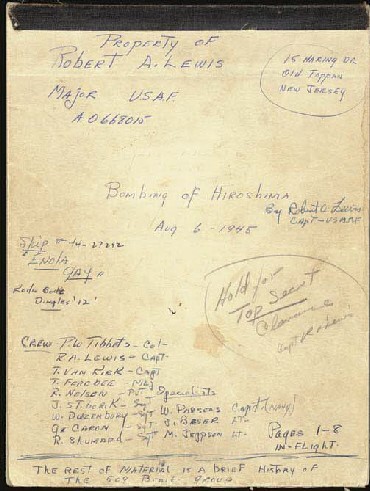 PROPERTY OF
ROBERT A. LEWIS
MAJOR USAF
15 HARING DR.
OLD TAPPAN
NEW JERSEY
BOMBING OF HIROSHIMA
AUG 6 - 1945
By Robert A. Lewis
CAPT-USAAF
Ship 44-
"ENOLA
GAY"
Radio Call
Dimples '82'
Hold for
TOP Secret
Clearance
Capt R Lewis
CREW P.W. Tibbets - Col.
R.A. LEWIS - Capt
T. VAN KIRK - Capt
T. FEREBEE - Maj
R. NELSON - Pvt Specialists
J. STIBORIK - Sgt W. PARSONS Capt (navy)
W. DUZENBURY - Sgt J. BESER LT-
G. CARON - Sgt M. JEPPSON LT-
R. SHUMARD - Sgt
Pages 1-8
IN-FLIGHT.
THE REST OF MATERIAL IS A BRIEF HISTORY OF
THE 509 BOMB. GROUP